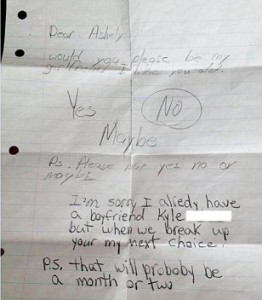 Dear Ashely
would you please be my
girlfriend I like you alot.
Yes
NO
Maybe
Ps. Please put yes no or
maybe
I'm sorry I aliedy have
a boyfriend Kyle
but when we break up
your my next choice.
P.S. that will probody be
a month or two